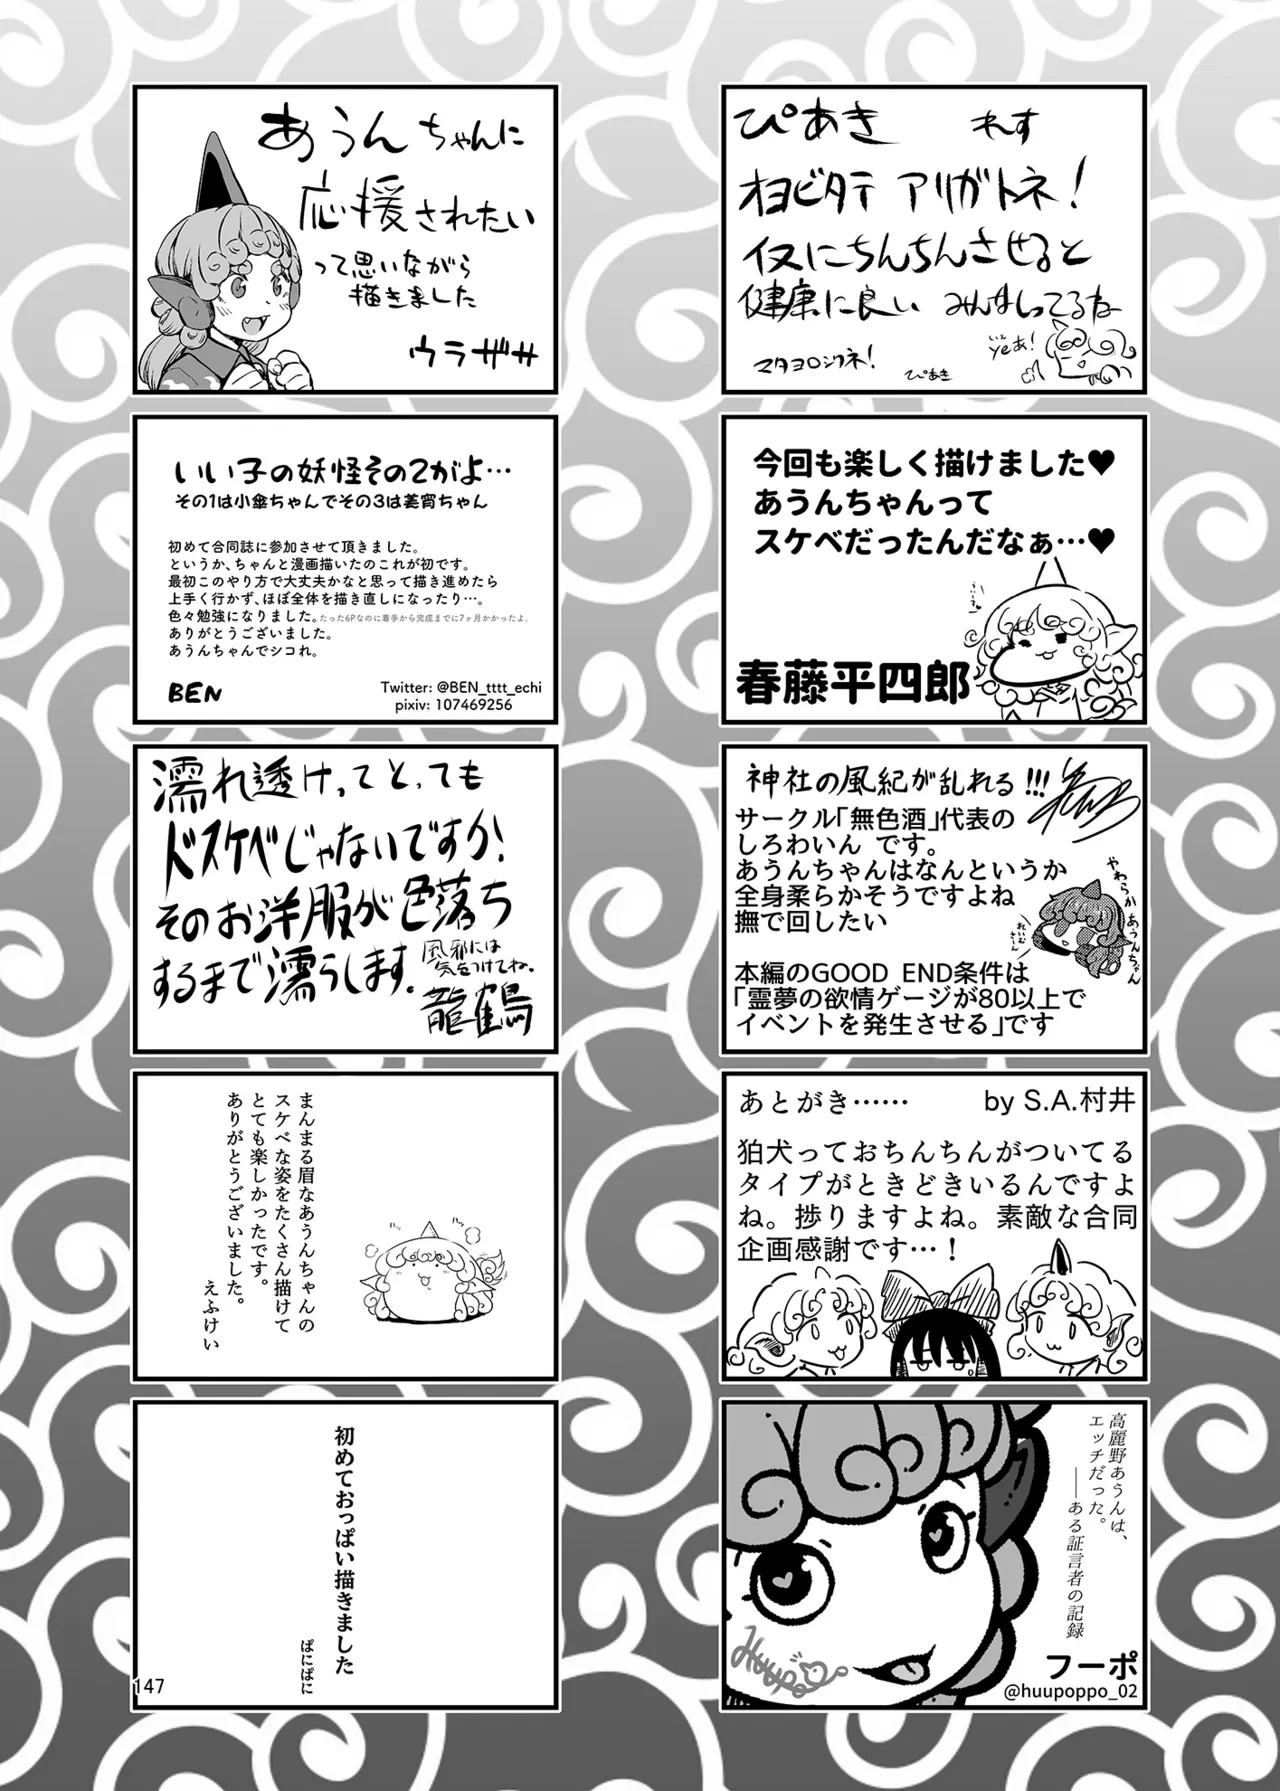 ぴあき れす
オヨビタテ アリガトネ!
イヌにちんちんさせると
健康に良い みんなしってるな
yeあ!
いぇ
マタヨロシクネ!
ぴあき
今回も楽しく描けました♥
あうんちゃんって
スケベだったんだなぁ…♥
春藤平四郎
神社の風紀が乱れる!!!
サークル「無色酒」代表の
しろわいん です。
あうんちゃんはなんというか
全身柔らかそうですよね
撫で回したい
やわらかあうんちゃん
れいむさーん
本編のGOOD END条件は
「霊夢の欲情ゲージが80以上で
イベントを発生させる」です
あとがき…… by S.A.村井
狛犬っておちんちんがついてる
タイプがときどきいるんですよ
ね。捗りますよね。素敵な合同
企画感謝です…!
高麗野あうんは、
エッチだった。
――ある証言者の記録
Huupo
フーポ
@huupoppo_02
あうんちゃんに
応援されたい
って思いながら
描きました
ウラザサ
いい子の妖怪その2がよ…
その1は小傘ちゃんでその3は美宵ちゃん
初めて合同誌に参加させて頂きました。
というか、ちゃんと漫画描いたのこれが初です。
最初このやり方で大丈夫かなと思って描き進めたら
上手く行かず、ほぼ全体を描き直しになったり…。
色々勉強になりました。たった6Pなのに着手から完成までに7ヶ月かかったよ。
ありがとうございました。
あうんちゃんでシコれ。
BEN
Twitter: @BEN_tttt_echi
pixiv: 107469256
濡れ透けってと、ても
ドスケベじゃないですか!
そのお洋服が色落ち
するまで濡らします。
風邪には
気をつけてね。
龍鶴
まんまる眉なあうんちゃんの
スケベな姿をたくさん描けて
とても楽しかったです。
ありがとうございました。
えふけい
初めておっぱい描きました
ぱにぱに
147